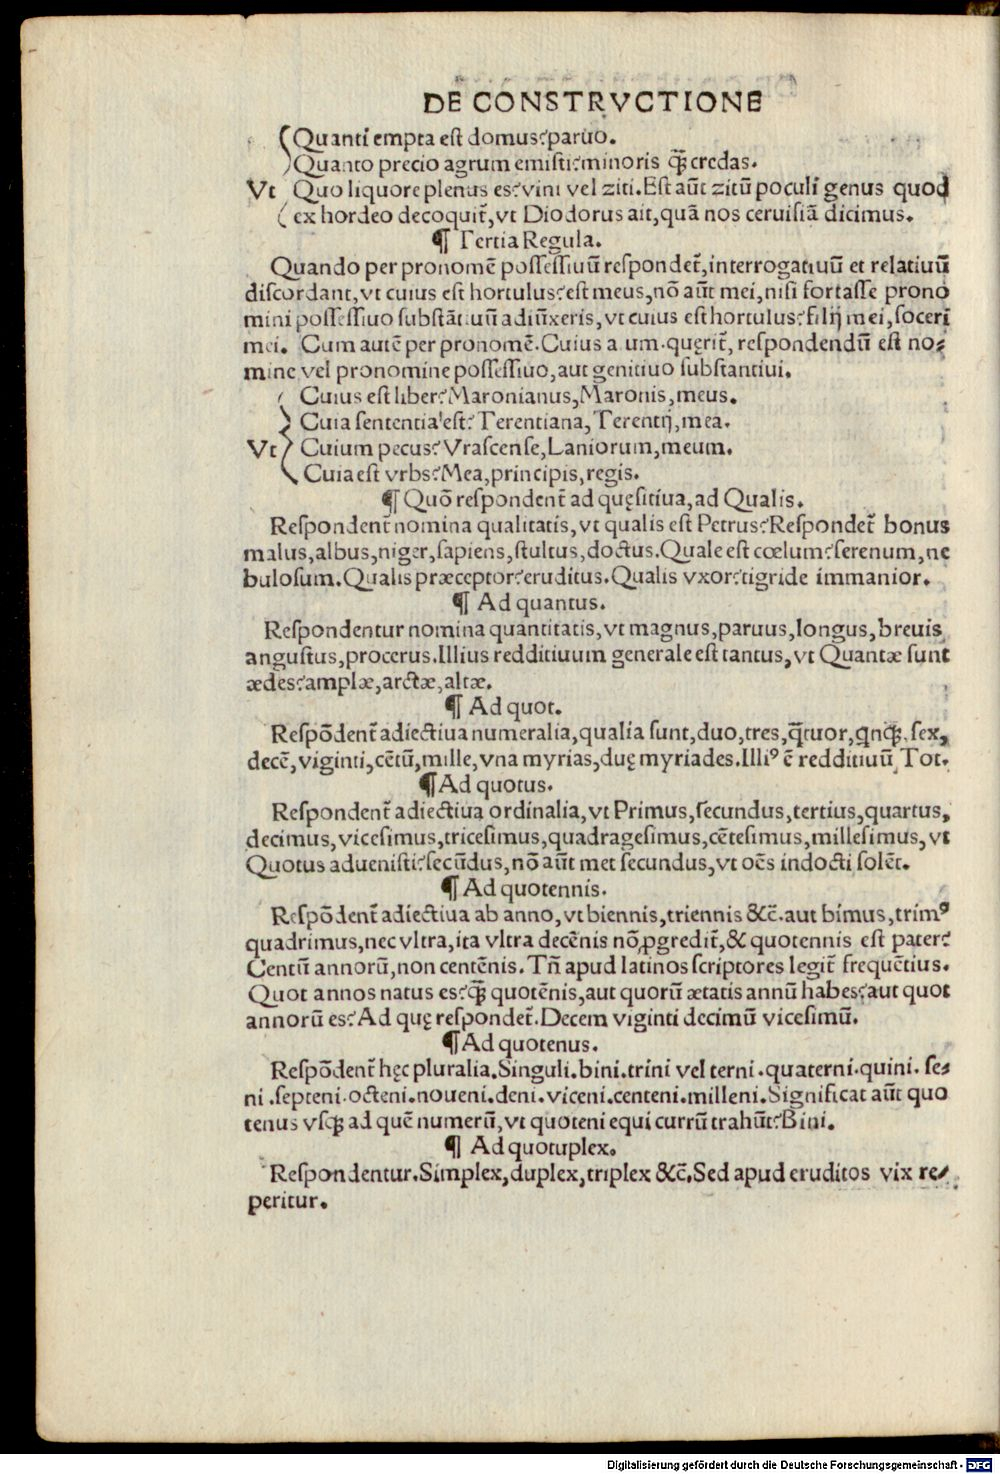 DE CONSTRVCTIONE
Quanti empta est domus? paruo.
Quanto precio agrum emisti? minoris q̄ꝫ credas.
Vt Quo liquore plenus es? vini vel ziti. Est aūt zitū poculi genus quod
ex hordeo decoquit᷑, vt Diodorus ait, quā nos ceruisiā dicimus.
¶ Tertia Regula.
Quando per pronomē possessiuū respondet᷑, interrogatiuū et relatiuū
discordant, vt cuius est hortulus? est meus, nō aūt mei, nisi fortasse prono
mini possessiuo substātiuū adiūxeris, vt cuius est hortulus? filij mei, soceri
mei. Cum autē per pronomē. Cuius a um. quęrit᷑, respondendū est no⸗
mine vel pronomine possessiuo, aut genitiuo substantiui.
Cuius est liber? Maronianus, Maronis, meus.
Cuia sententia est? Terentiana, Terentij, mea.
Vt Cuium pecus? Vrascense, Laniorum, meum.
Cuia est vrbs? Mea, principis, regis.
¶ Quō respondent᷑ ad quęsitiua, ad Qualis.
Respondent᷑ nomina qualitatis, vt qualis est Petrus? Respondet᷑ bonus
malus, albus, niger, sapiens, stultus, doctus. Quale est cœlum? serenum, ne
bulosum. Qualis præceptor? eruditus. Qualis vxor? tigride immanior.
¶ Ad quantus.
Respondentur nomina quantitatis, vt magnus, paruus, longus, breuis
angustus, procerus. Illius redditiuum generale est tantus, vt Quantæ sunt
ædes? amplæ, arctæ, altæ.
¶ Ad quot.
Respōdent᷑ adiectiua numeralia, qualia sunt, duo, tres, q̄tuor, qnqꝫ, sex,
decē, viginti, cētū, mille, vna myrias, duę myriades. Illiꝰ ē redditiuū, Tot.
¶ Ad quotus.
Respondent᷑ adiectiua ordinalia, vt Primus, secundus, tertius, quartus,
decimus, vicesimus, tricesimus, quadragesimus, cētesimus, millesimus, vt
Quotus aduenisti? secūdus, nō aūt met secundus, vt oēs indocti solēt.
¶ Ad quotennis.
Respōdent᷑ adiectiua ab anno, vt biennis, triennis &c̄. aut bimus, trimꝰ
quadrimus, nec vltra, ita vltra decēnis nō ꝓgredit᷑, & quotennis est pater?
Centū annorū, non centēnis. Tn̄ apud latinos scriptores legit᷑ frequētius.
Quot annos natus es? q̄ꝫ quotēnis, aut quorū ætatis annū habes? aut quot
annorū es? Ad quę respondet᷑. Decem viginti decimū vicesimū.
¶ Ad quotenus.
Respōdent᷑ hęc pluralia. Singuli. bini. trini vel terni. quaterni. quini. se⸗
ni. septeni. octeni. noueni. deni. viceni. centeni. milleni. Significat aūt quo
tenus vsqꝫ ad quē numerū, vt quoteni equi currū trahūt? Bini.
¶ Ad quotuplex.
Respondentur. Simplex, duplex, triplex &c̄. Sed apud eruditos vix re⸗
peritur.
Digitalisierung gefördert durch die Deutsche Forschungsgemeinschaft - DFG